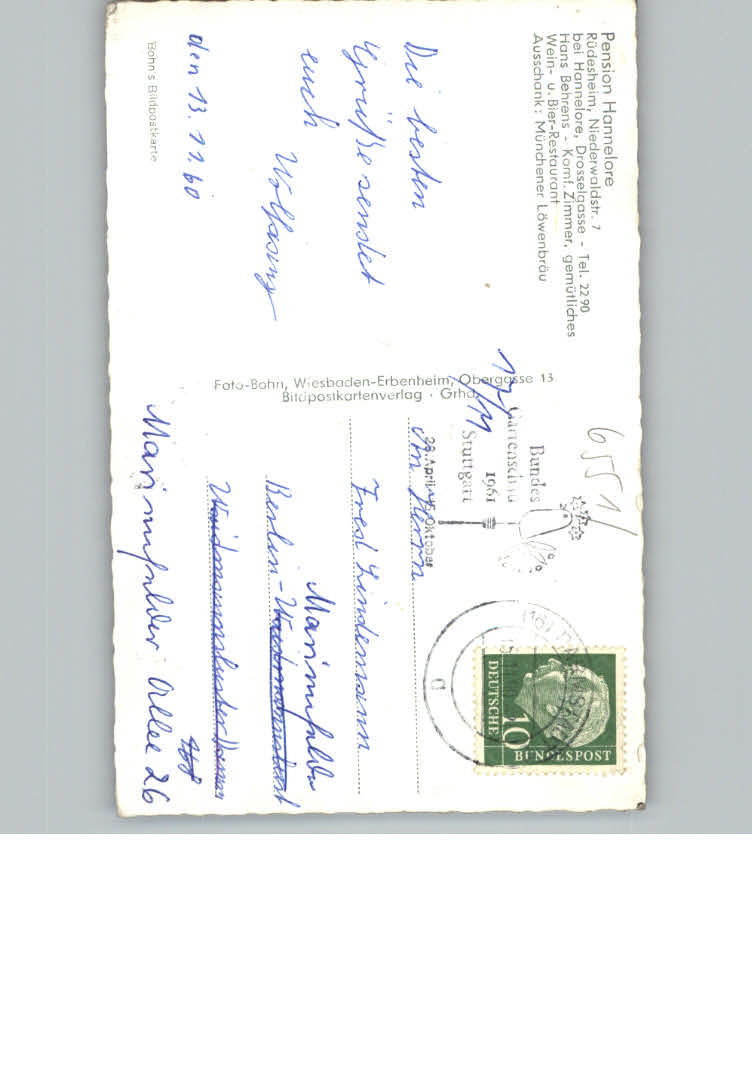 Pension Hannelore
Rüdesheim, Niederwaldstr. 7
bei Hannelore, Drosselgasse - Tel. 2290
Hans Behrens - Komf. Zimmer, gemütliches
Wein- u. Bier-Restaurant
Ausschank: Münchener Löwenbräu
Die besten
Grüße sendet
euch Wolfgang
den 13.11.60
Bohn's Bildpostkarte
Foto-Bohn, Wiesbaden-Erbenheim, Obergasse 13
Bildpostkartenverlag · Grhdl.
6551/
17/11
Bundes
Gartenschau
1961
Stuttgart
28.April-15.Oktober
DEUTSCHE
10
BUNDESPOST
d
An Herrn
Fred Lindemann
Marienfelde
Berlin-
Marienfelder Allee 26